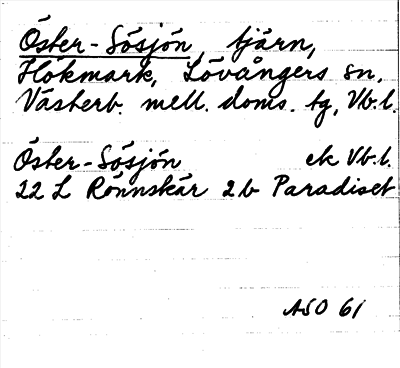 Öster-Sösjön, tjärn,
Hökmark, Lövångers sn,
Västerb. mell. doms. tg, Vb.l.
Öster-Sösjön ek Vb.l.
22 L Rönnskär 2b Paradiset
ASO 61